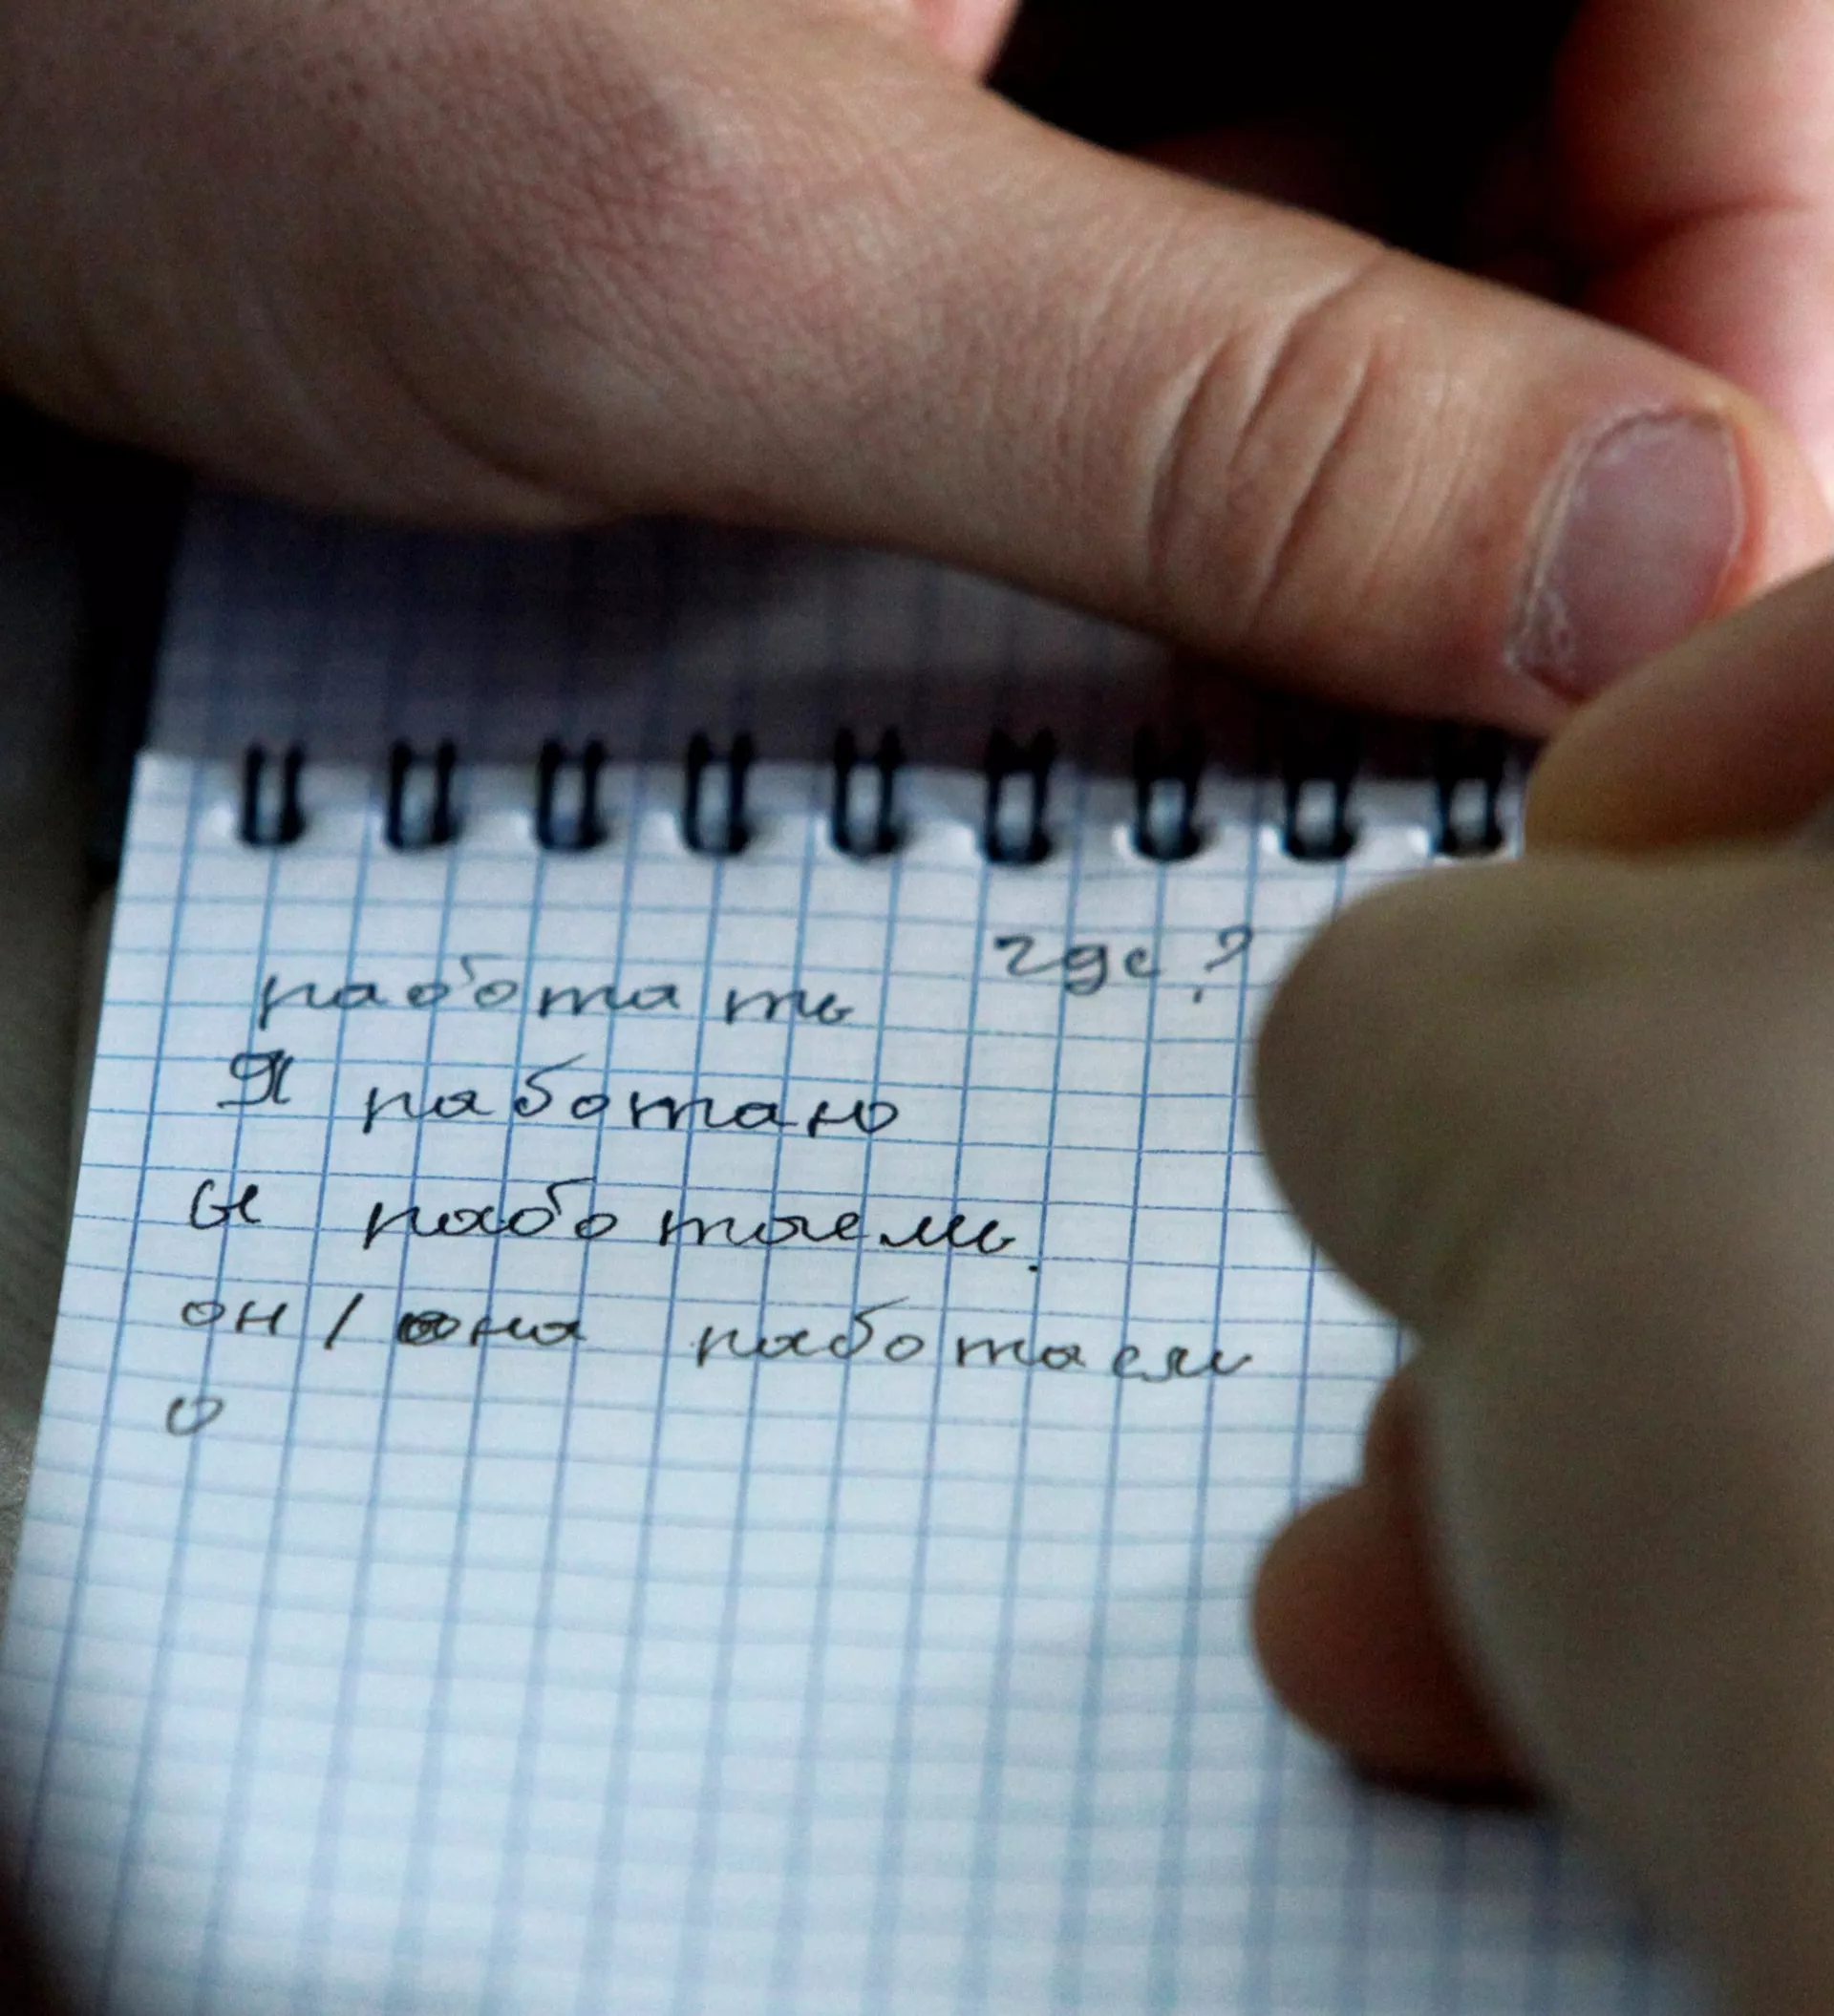 где?
работать
Я работаю
ы работаешь.
он / она работаем
о